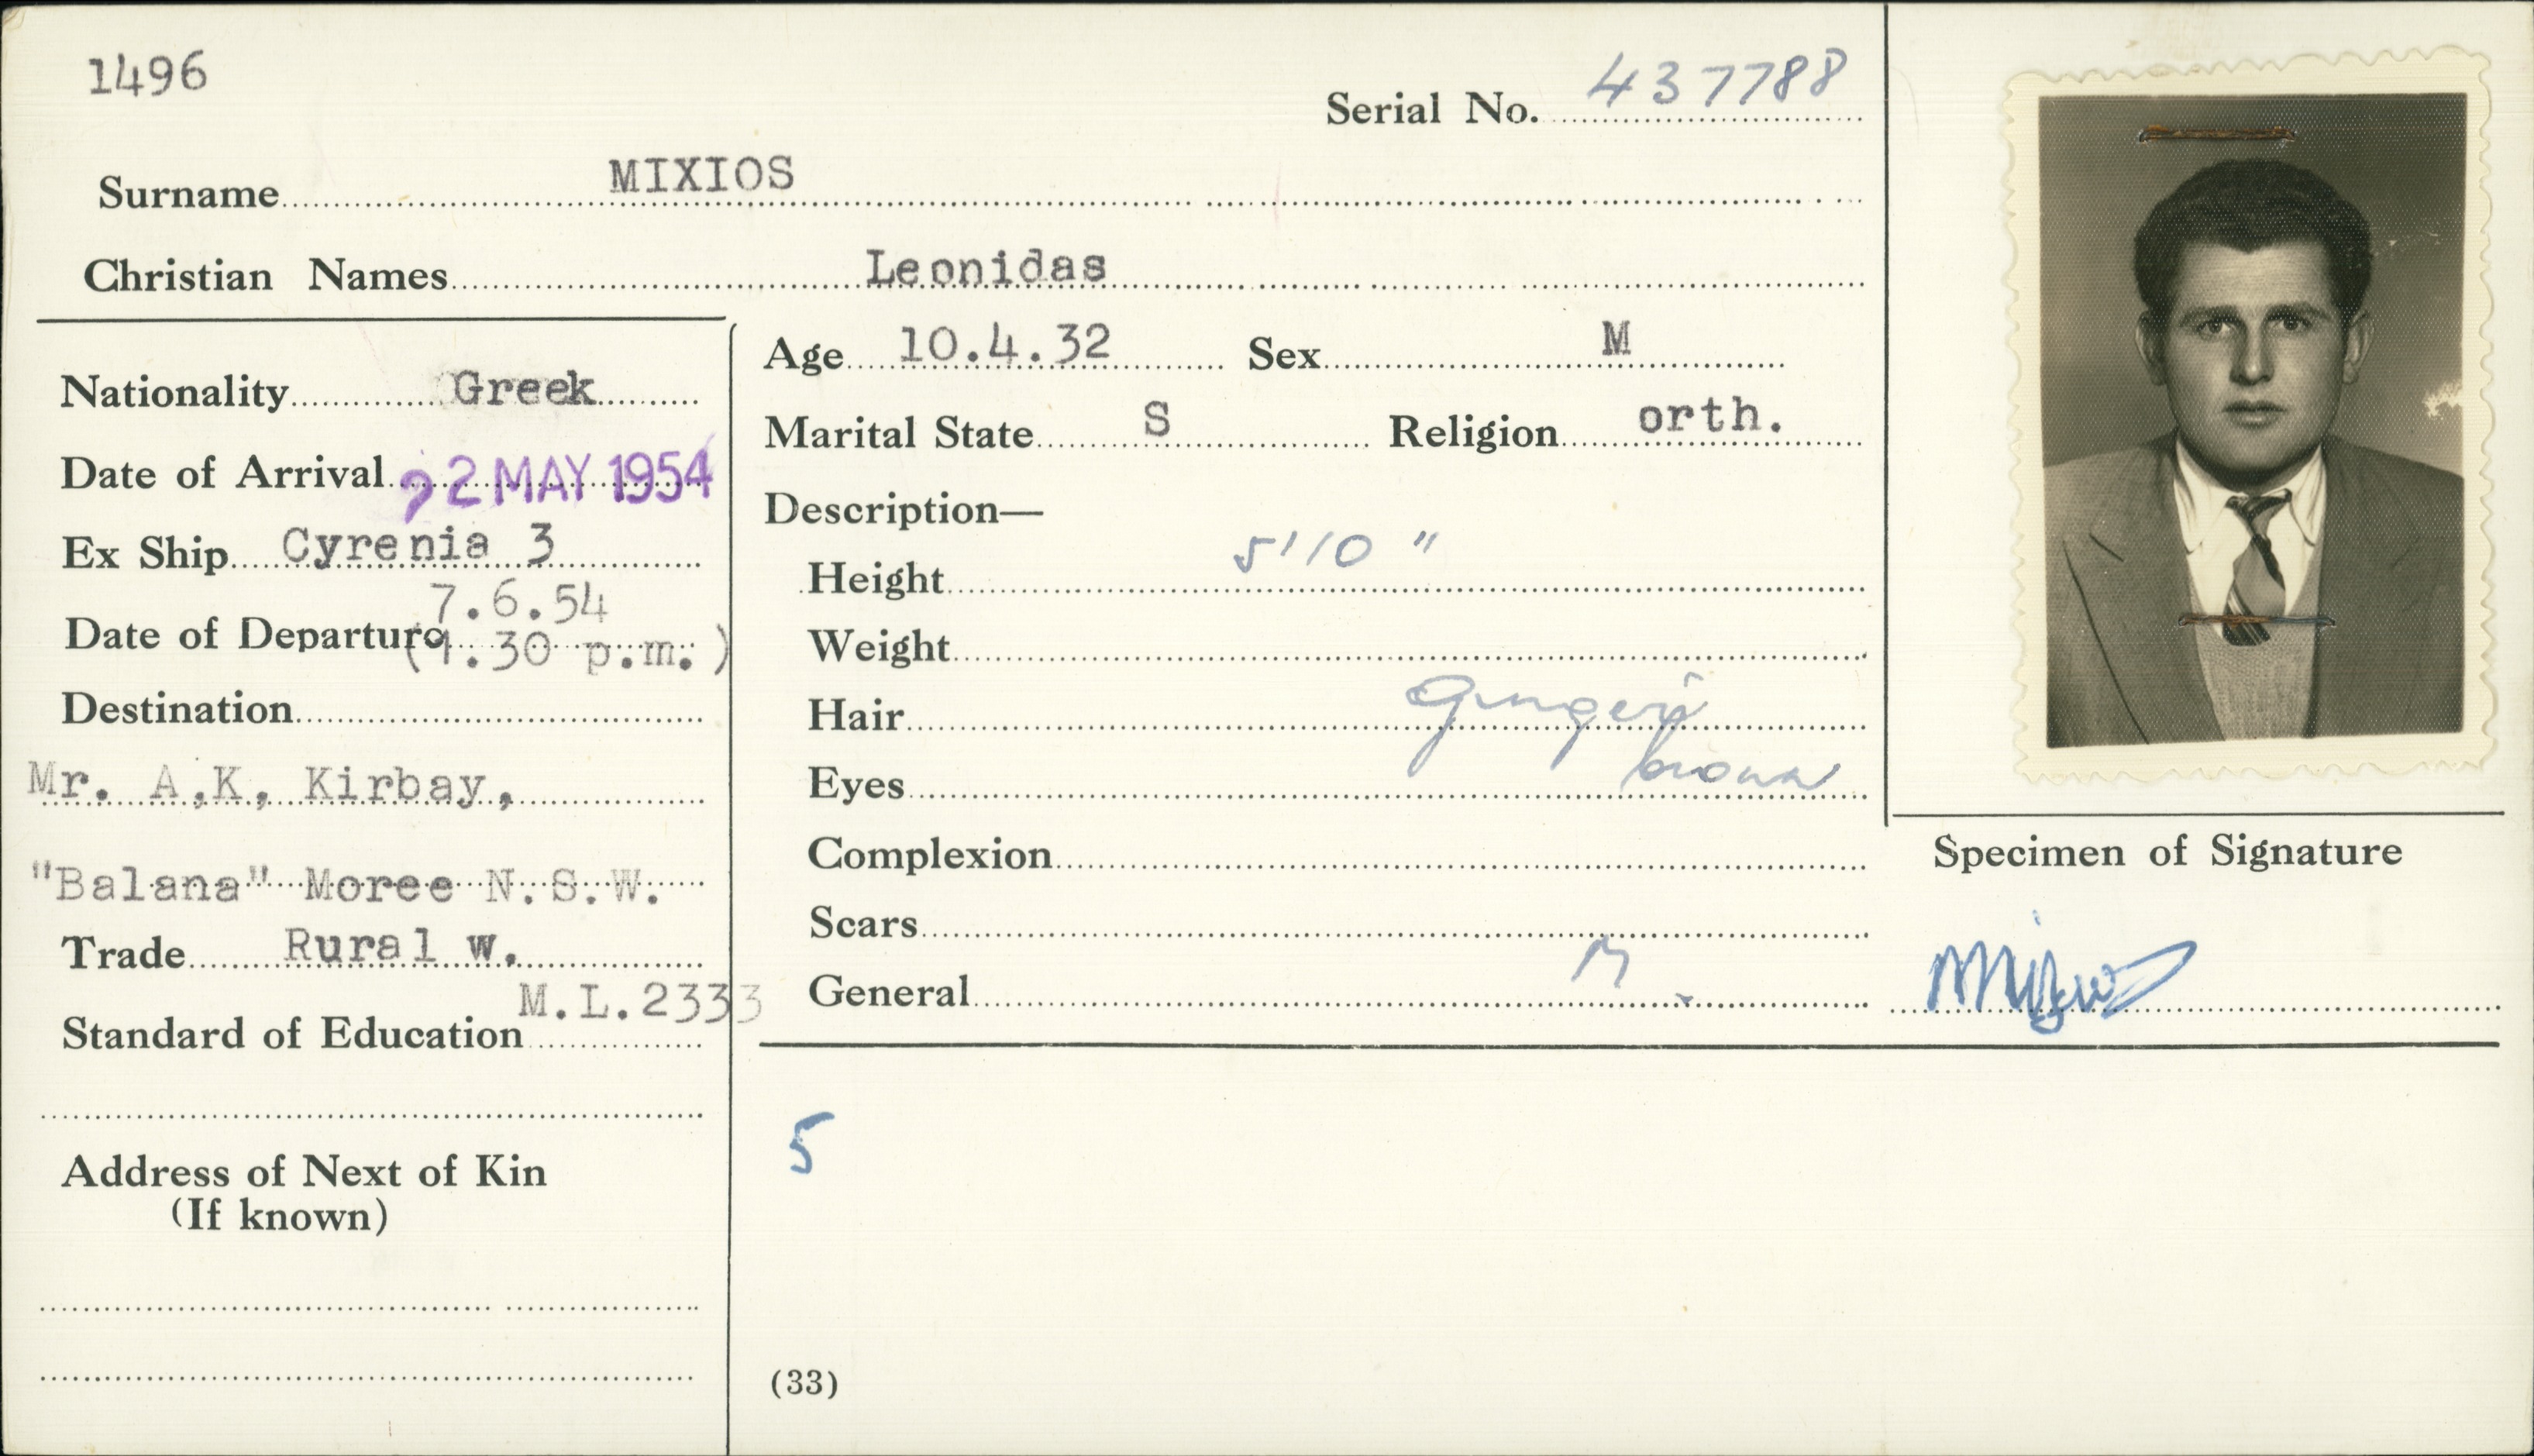 1496
Serial No. 437788
Surname MIXIOS
Christian Names Leonidas
Nationality Greek
Date of Arrival 22 MAY 1954
Ex Ship Cyrenia 3
7.6.54
Date of Departure (1.30 p.m.)
Destination
Mr. A.K, Kirbay,
"Balana" Moree N.S.W.
Trade Rural w.
M.L.2333
Standard of Education
Address of Next of Kin
(If known)
Age 10.4.32 Sex M
Marital State S Religion orth.
Description—
Height 5'10"
Weight
Hair
Eyes brown
Complexion
Scars
General
5
(33)
Specimen of Signature